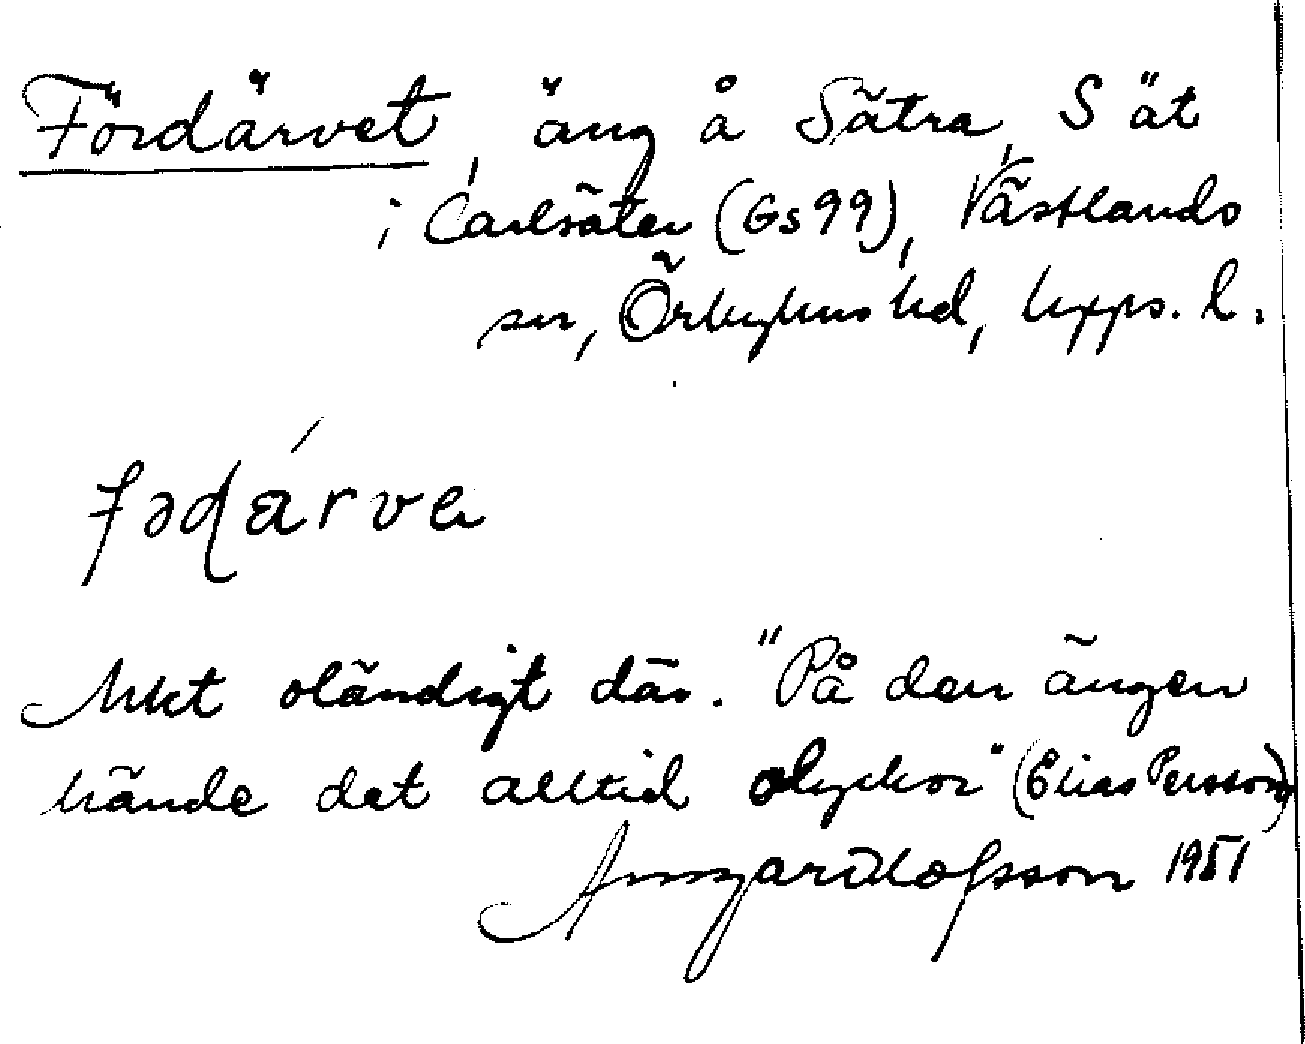 Fördärvet, äng å Sätra, S ät
i Carlsäter (Gs 99), Västlands
sn, Örbyhus hd, Upps. l.
fədárva
Mkt oländigt där. "På den ängen
hände det alltid olyckor" (Elias Persson)
Armgard Olofsson 1951